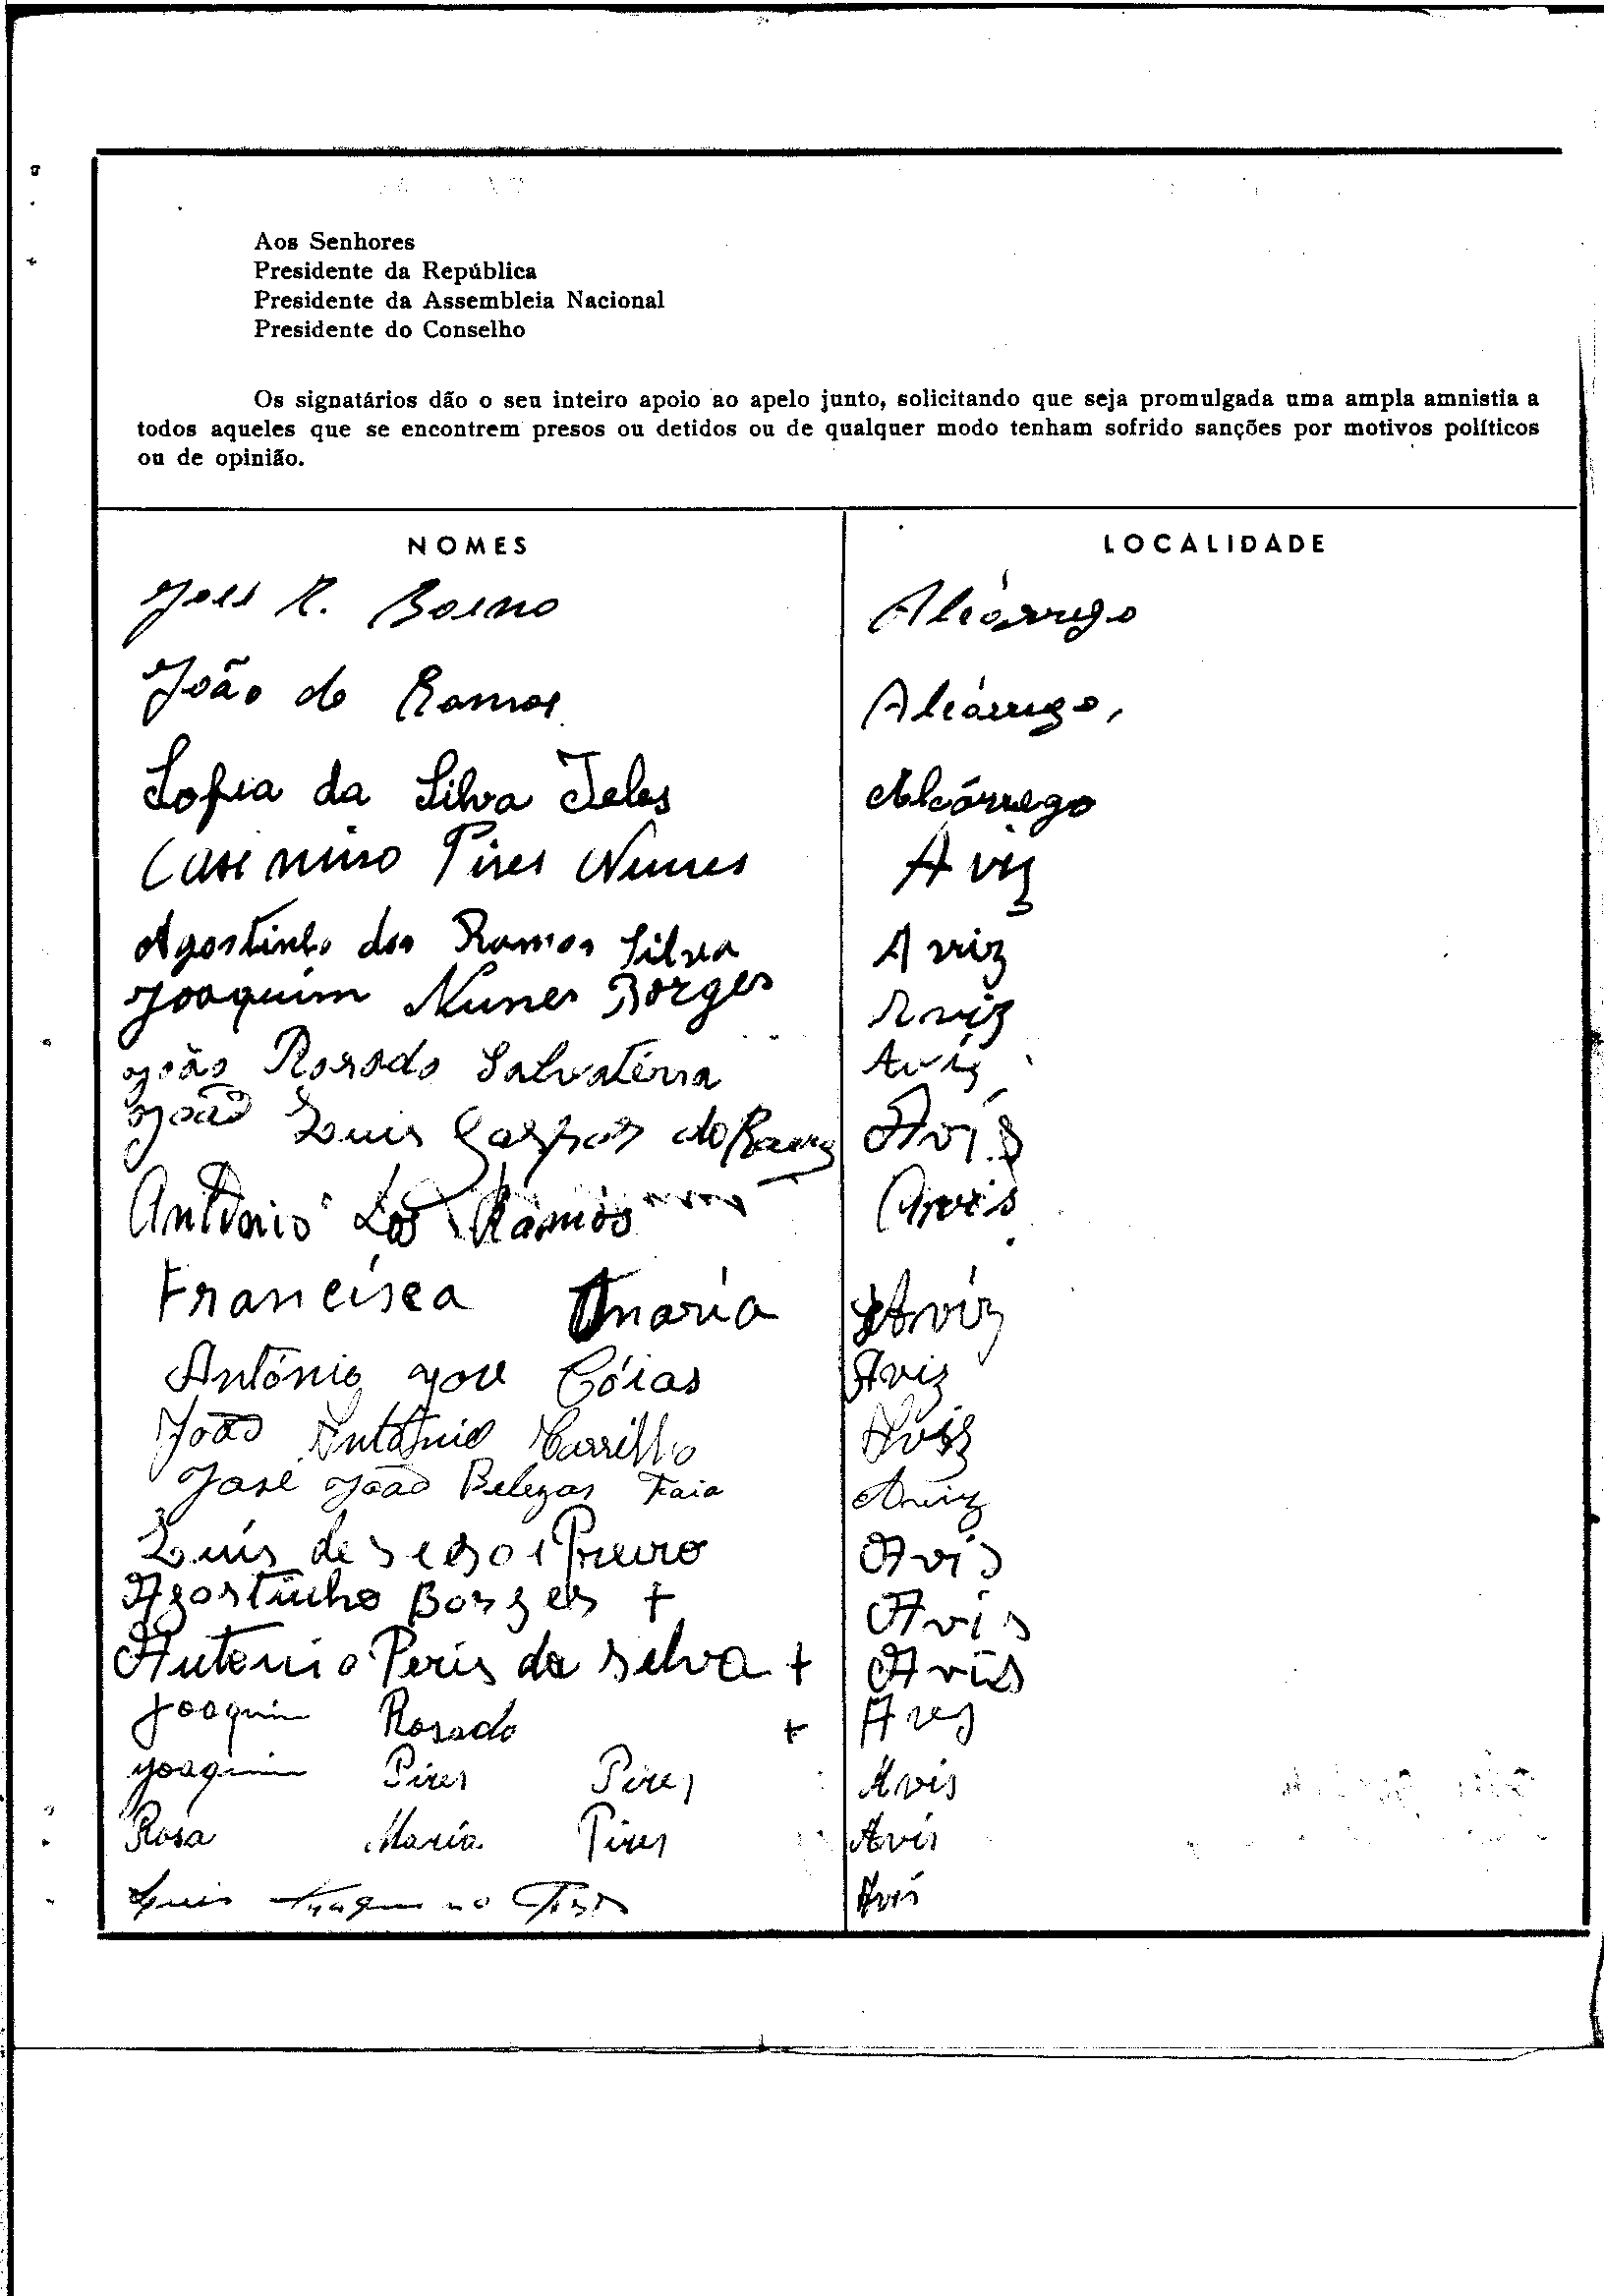 Aos Senhores
Presidente da República
Presidente da Assembleia Nacional
Presidente do Conselho
Os signatários dão o seu inteiro apoio ao apelo junto, solicitando que seja promulgada uma ampla amnistia a
todos aqueles que se encontrem presos ou detidos ou de qualquer modo tenham sofrido sanções por motivos políticos
ou de opinião.
NOMES LOCALIDADE
R. Alcórrego
João de Ramos Alcórrego,
Sofia da Silva Teles Alcórrego
Casimiro Pires Nunes Aviz
Agostinho dos Ramos Silva Aviz
Joaquim Nunes Borges Aviz
João Rosado Salvatérra Aviz
João Luis Gaspar Avís
António dos Ramos Avis
Francisca Maria Avíz
António José Cóias Aviz
João António Carrilho Aviz
José João Belezas Faia Aviz
Luís de Avis
Agostinho Borges + Avis
Antonio Peris da Selva + Avis
Joaquim Rosado + Aves
Joaquim Pires Pires Avis
Rosa Maria Pires Avis
Luis Avis